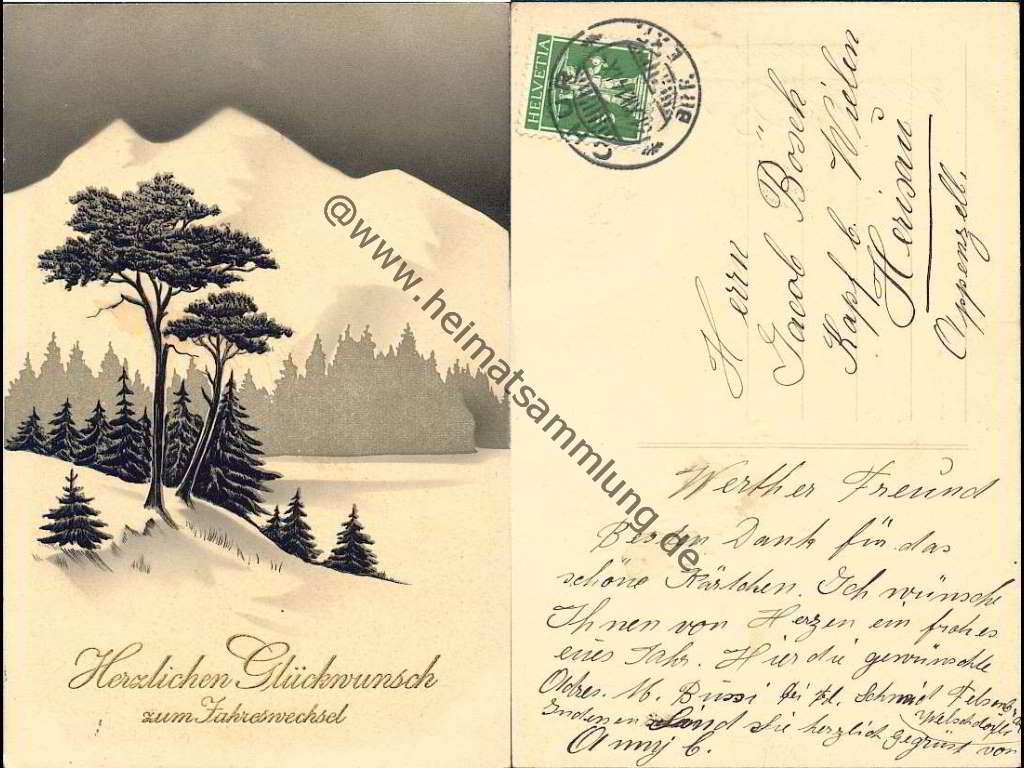 Herzlichen Glückwunsch
zum Jahreswechsel
@www.heimatsammlung.de
HELVETIA
BRF. EXP.
Herrn
Jacob Bösch
Kapf b. Wielen
Herisau
Appenzell.
Werther Freund
Besten Dank für das
schöne Kärtchen. Ich wünsche
Ihnen von Herzen ein frohes
neues Jahr. Hier die gewünschte
Adres. M. Büssi bei Fl. Schmid
Welschdörfli
Sind Sie herzlich gegrüst von
Anny C.